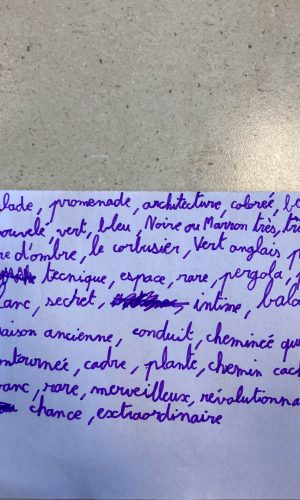 lade, promenade, architecture, colorée, be
ouvelé, vert, bleu, Noire ou Marron très, trè
re d'ombre, le corbusier, Vert anglais, p
tecnique, espace, rare, pergola,
lanc, secret, intime, bala
aison ancienne, conduit, chemineé qu
ntourneé, cadre, plante, chemin cach
anc, rare, merveilleux, révolutionna
chance, extraordinaire